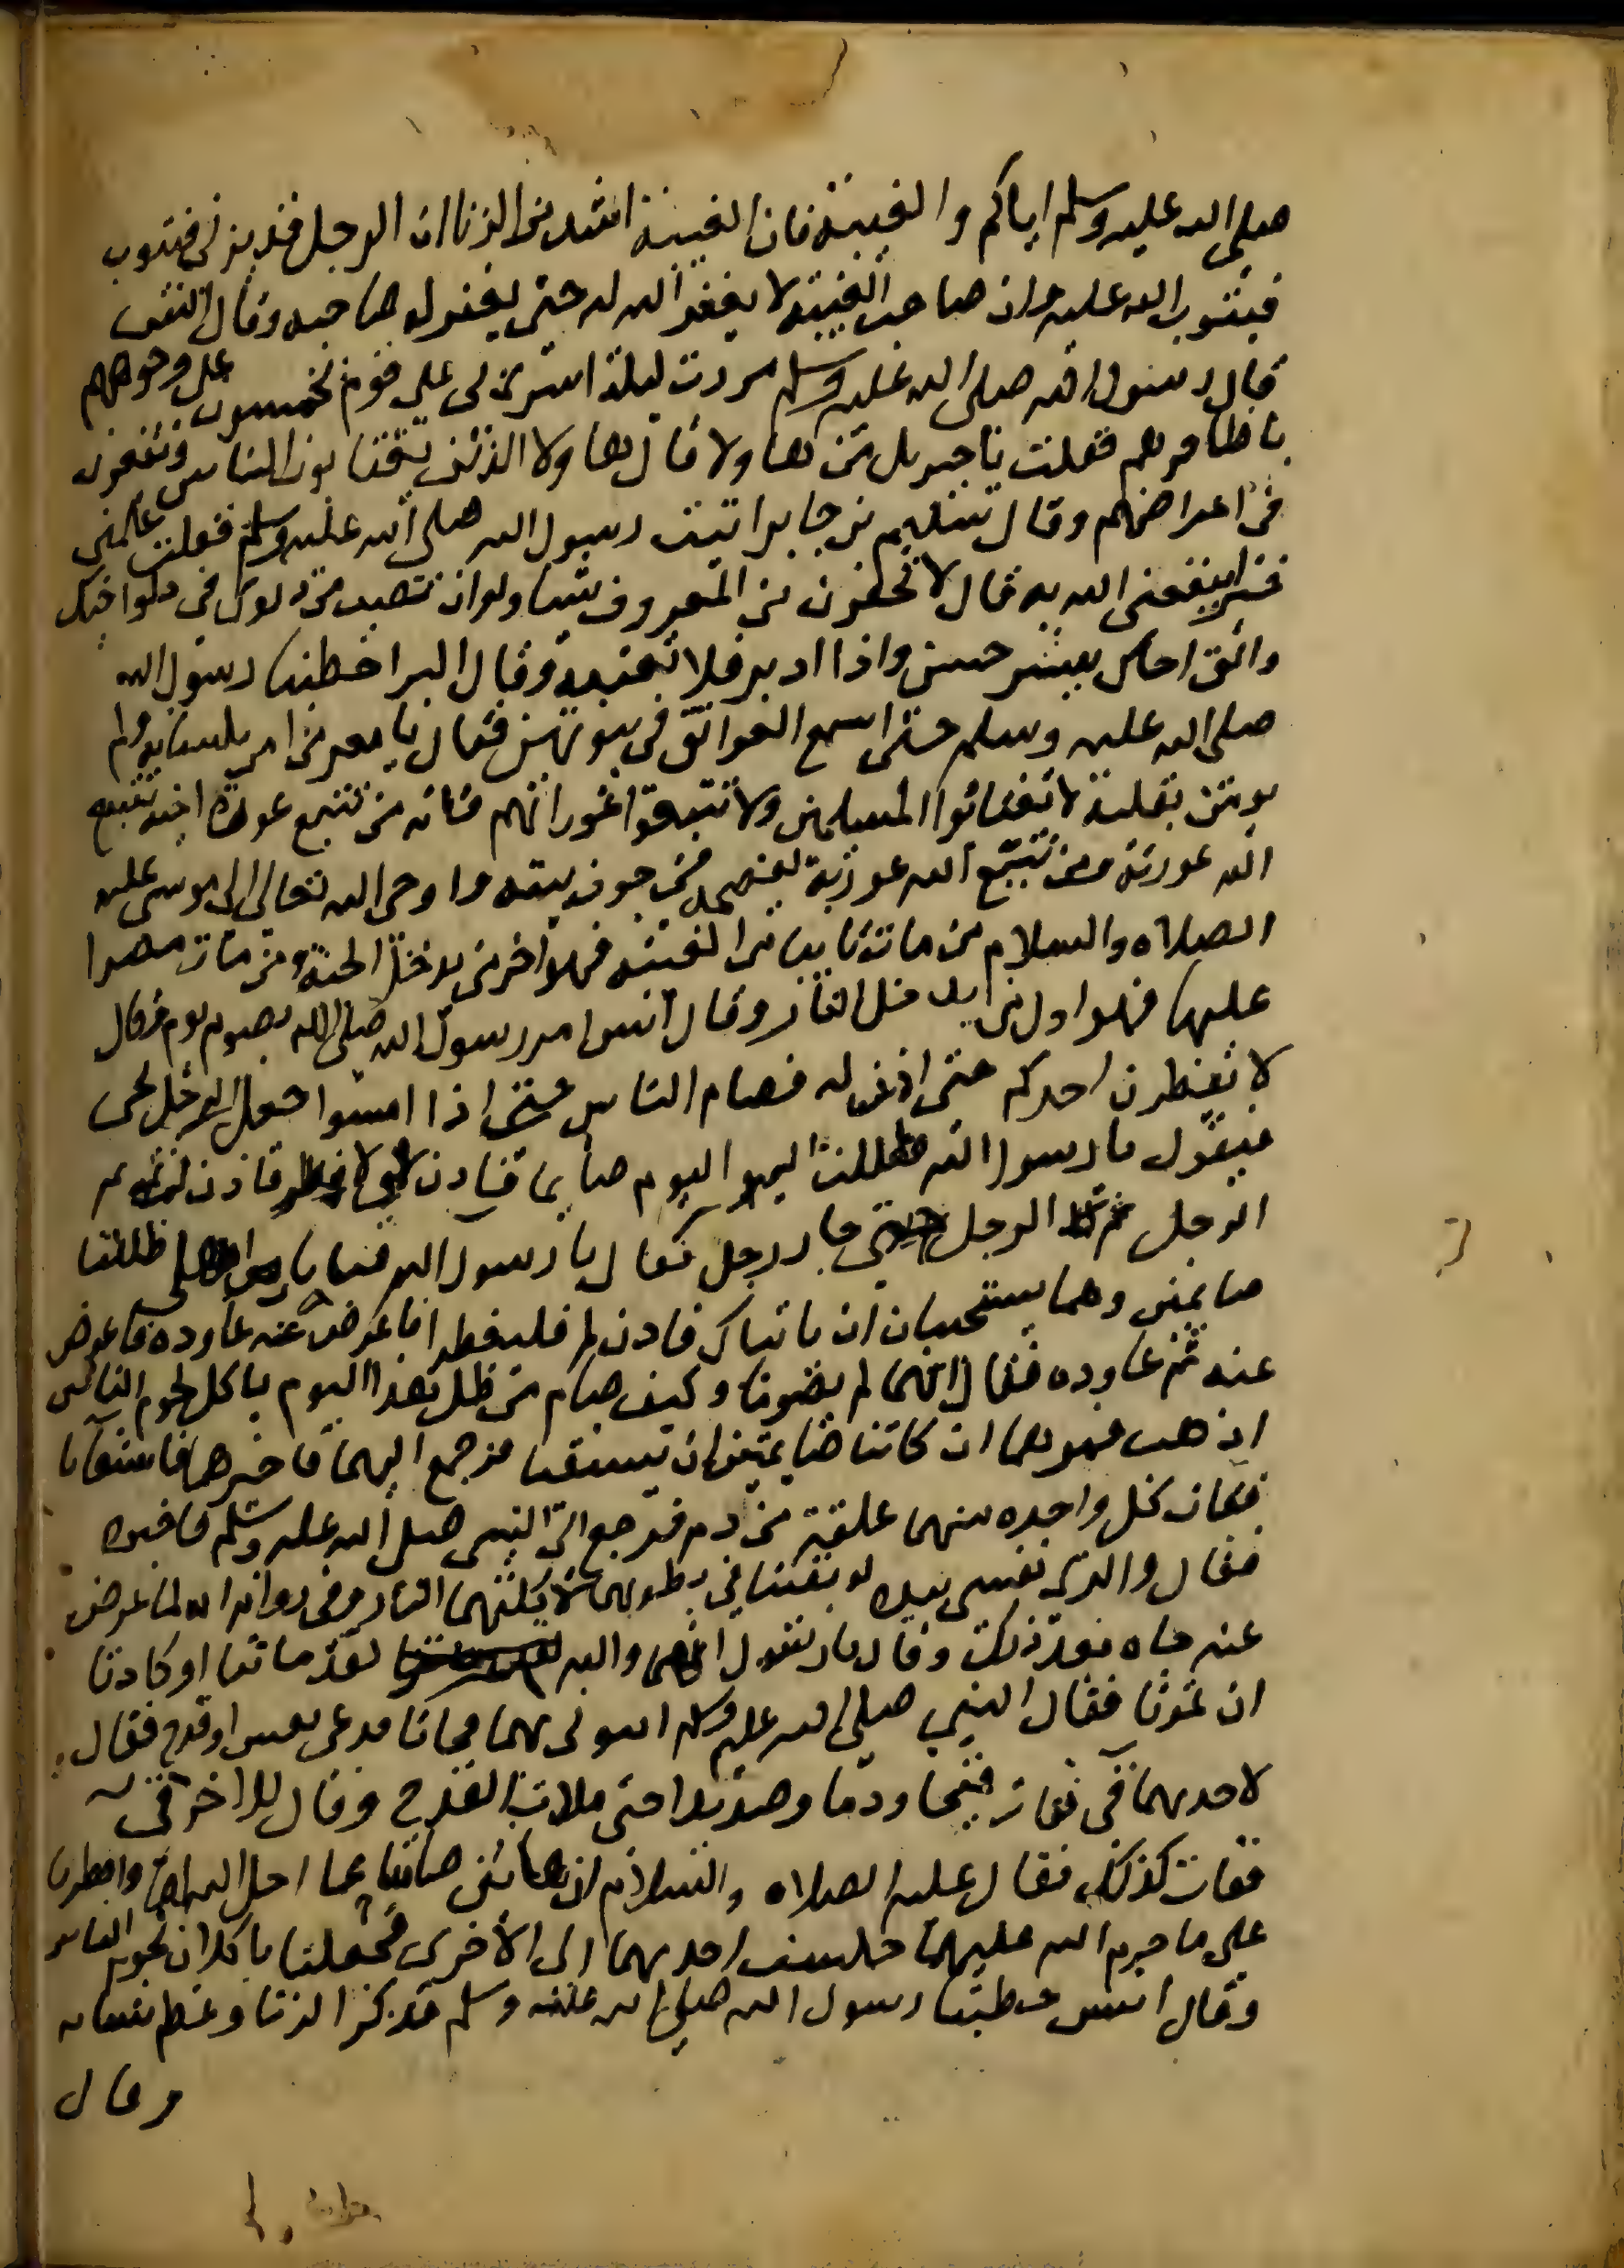 صلى الله عليه وسلم اياكم والغيبة فان الغيبة اشد من الزنا ان الرجل قد يزني فيتوب
فيتوب الله عليه وان صاحب الغيبة لا يغفر الله له حتى يغفر له صاحبه وقال انس
قال رسول الله صلى الله عليه وسلم مررت ليلة اسري بي على قوم يخمسون على وجوههم
باظافرهم فقلت يا جبريل من هاولا قال هاولا الذين يغتابون الناس ويقعون
في اعراضهم وقال سليم بن جابر اتيت رسول الله صلى الله عليه وسلم فقلت علمني
خيرا ينفعني الله به قال لا تحقرن من المعروف شيا ولو ان تصب من دلوك في دلو اخيك
والق اخاك ببشر حسن واذا ادبر فلا تغتبه وقال البرا خطبنا رسول الله
صلى الله عليه وسلم حتى اسمع العواتق في بيوتهن فقال يا معر من امن بلسانه ولم
يومن بقلبه لا تغتابوا المسلمين ولا تتبعوا عوراتهم فانه من تتبع عورة اخيه تتبع
الله عورته ومن تتبع الله عورته يفضحه في جوف بيته واوحى الله تعالى الى موسى عليه
الصلاه والسلام من مات تايبا من الغيبه فهو اخر من يدخل الجنة ومن مات مصرا
عليها فهو اول من يدخل النار وقال انس امر رسول الله صلى الله بصوم يوم وقال
لا يفطرن احدكم حتى اذن له فصام الناس حتى اذا امسوا جعل الرجل يجي
فيقول يا رسول الله ظللت اليوم صايما فاذن لي لافطر فاذن له
الرجل الرجل حتى جا رجل فقال يا رسول الله فتاتان من اهلي ظللتا
صايمتين وهما يستحيان ان ياتياك فاذن لهما فليفطرا فاعرض عنه عاوده فاعرض
عنه ثم عاوده فقال انهما لم يصوما وكيف صام من ظل هذا اليوم ياكل لحوم الناس
اذهب فمرهما ان كانتا صايمتين ان تستقيا فرجع اليهما فاخبرهما فاستقاتا
فقات كل واحده منهما علقة من دم فرجع الى النبي صلى الله عليه وسلم فاخبره
فقال والذي نفسي بيده لو بقيتا في بطونهما لاكلتهما النار وفي روايه انه لما اعرض
عنه جاه بعد ذلك وقال يا رسول الله والله لقد ماتتا او كادتا
ان تموتا فقال النبي صلى الله عليه وسلم ايتوني بهما فجاتا فدعى بعس او قدح فقال
لاحديهما قي فقات قيحا ودما وصديدا حتى ملات القدح وقال للاخرى قي
فقات كذلك فقال عليه الصلاه والسلام ان هاتين صامتا عما احل الله لهما وافطرتا
على ما حرم الله عليهما جلست احديهما الى الاخرى فجعلتا ياكلان لحوم الناس
وقال انس خطبنا رسول الله صلى الله عليه وسلم فذكر الزنا وعظم شانه
وقال